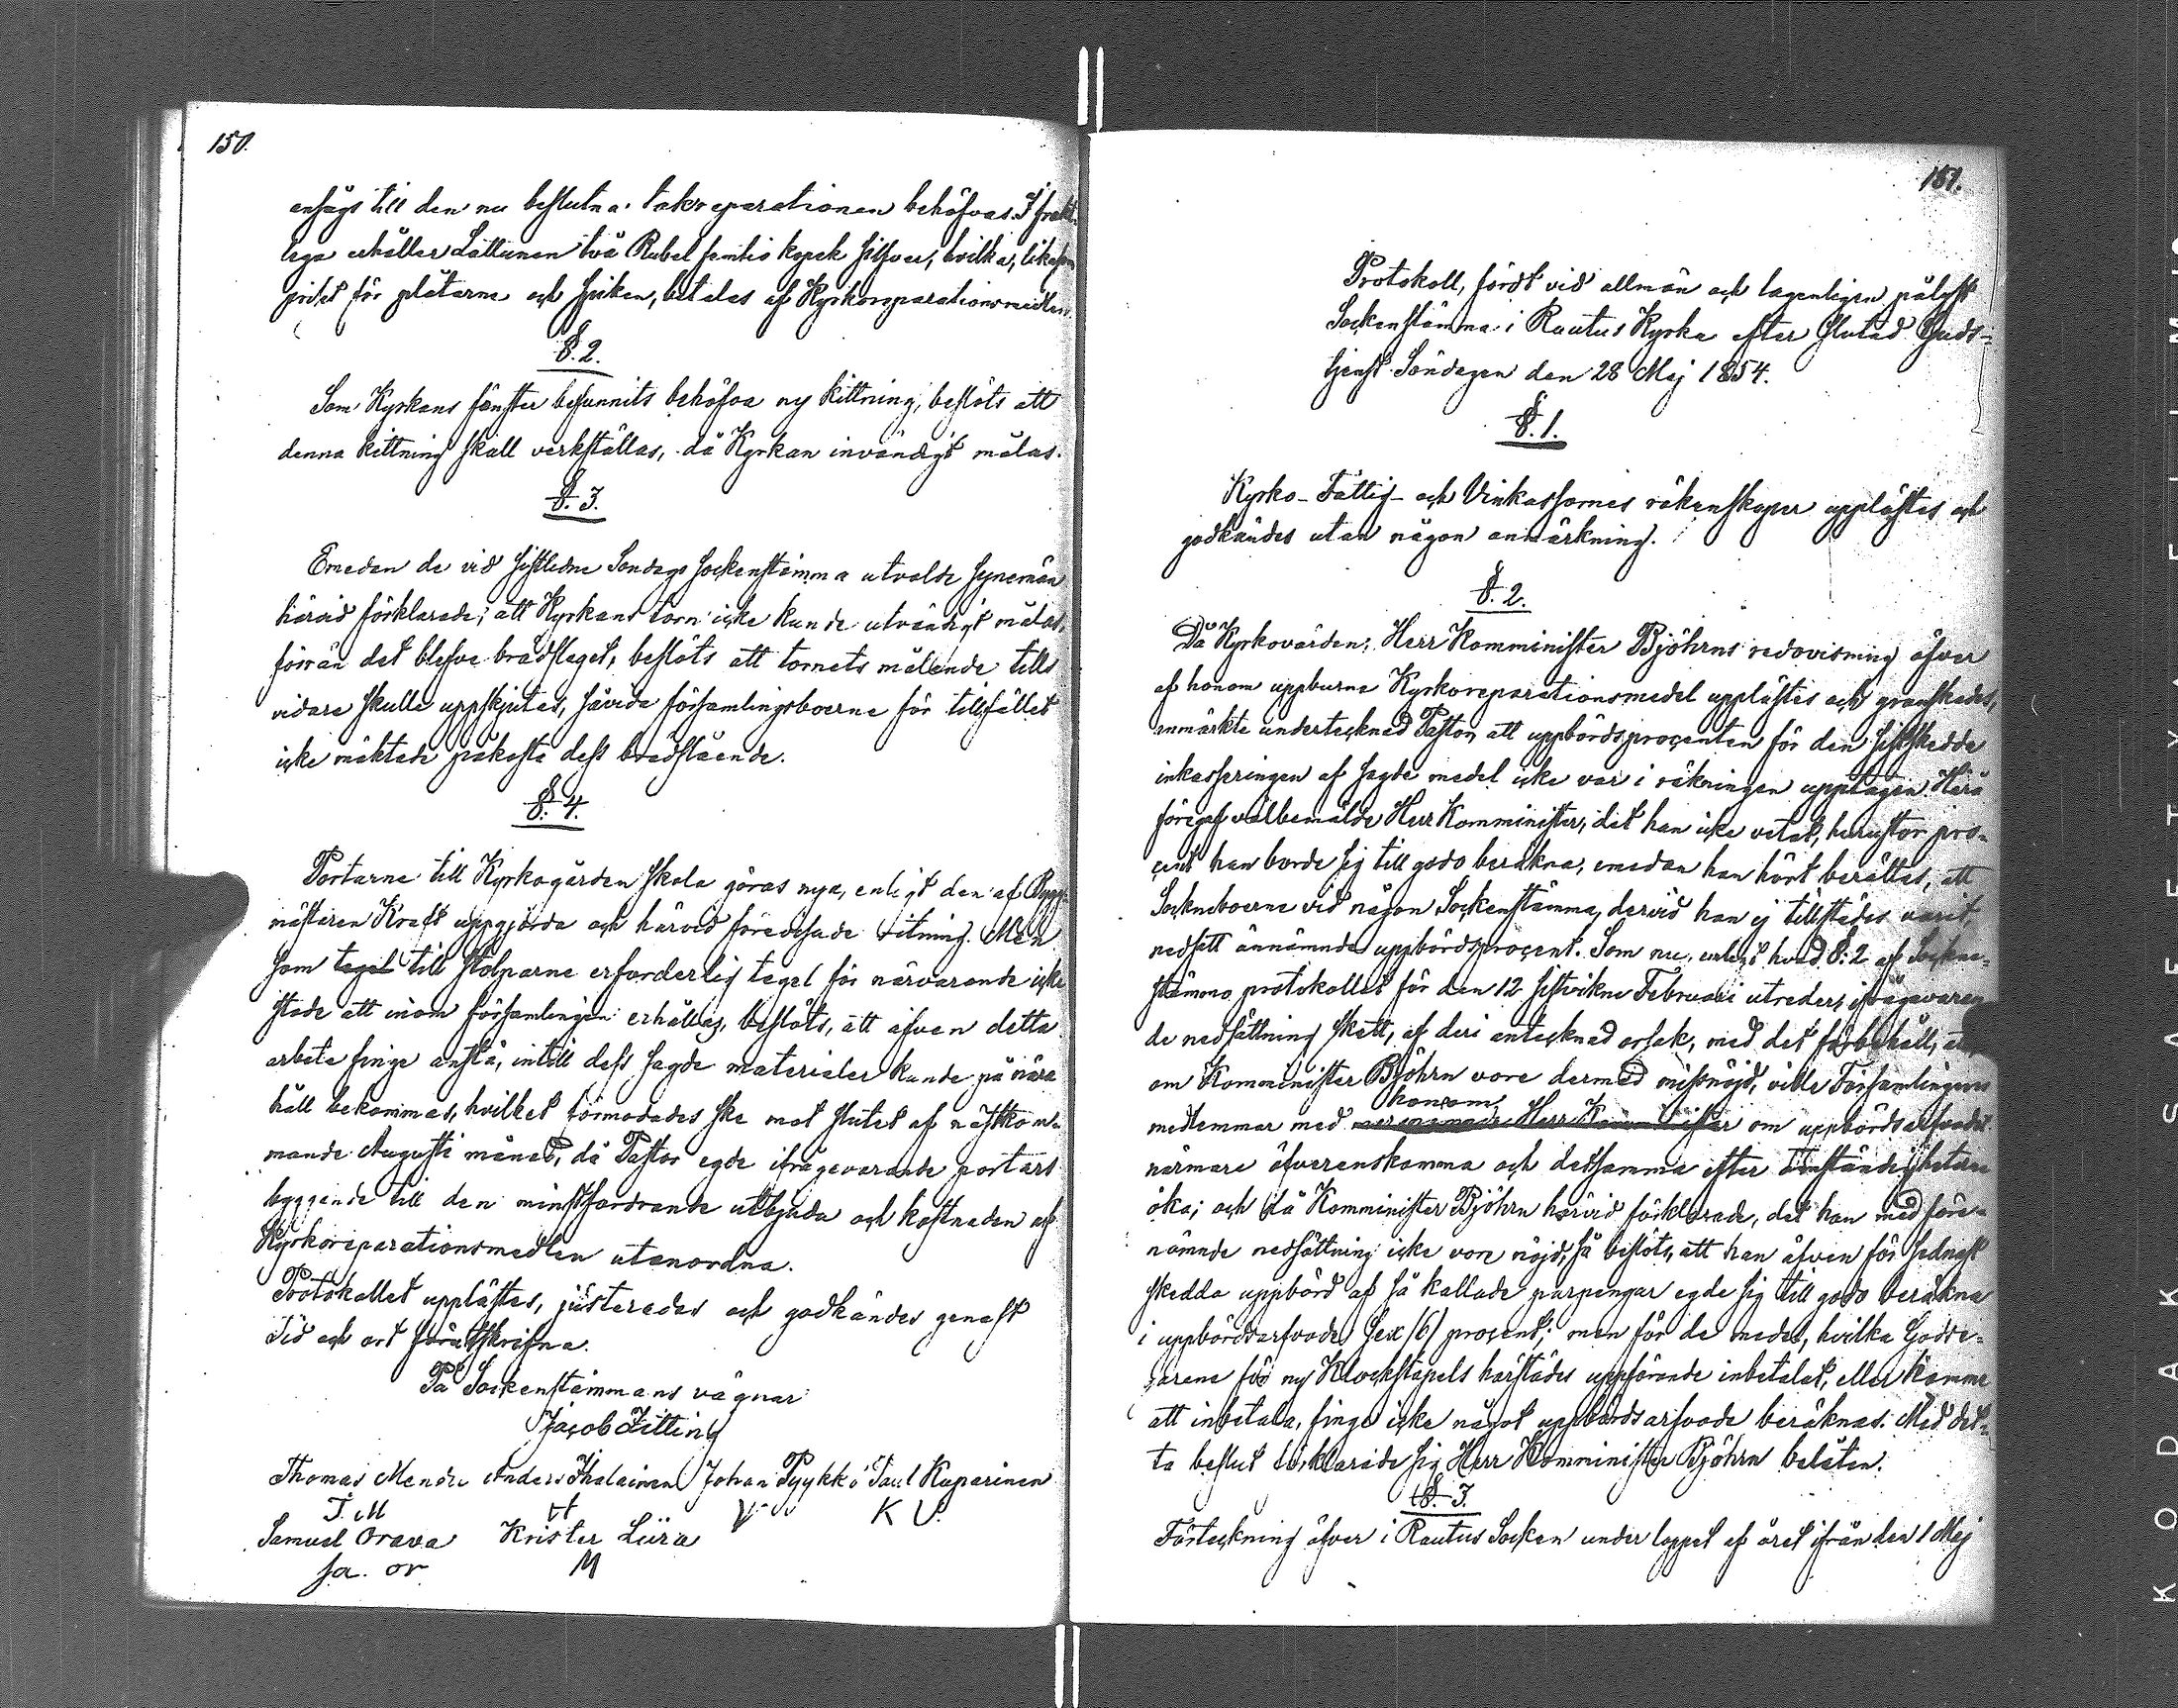 150.
ansågs till den nu beslutna takreparationen behöfvas. I frakt-
lega erhåller Lattunen två Rubel femtio kopek silfver, hvilka, likasom
priset för plåtarne och spiken, betalas af Kyrkoreparationsmedlen.
§. 2.
Som Kyrkans fönster befunnits behöfva ny kittning, beslöts att
denna kittning skall verkställas, då Kyrkan invändigt målas.
§. 3.
Emedan de vid sistledne Söndags sockenstämma utvalde synemän
härvid förklarade, att Kyrkans torn icke kunde utvändigt målas,
förrän det blefve brädslaget, beslöts att tornets målande tills
vidare skulle uppskjutas, såvida församlingsboerne för tillfället
icke mäktade påkosta dess brädslående.
§. 4.
Portarne till Kyrkogården skola göras nya, enligt den af Bygg-
mästaren Kraft uppgjorda och härvid föredesade ritning. Men
som tegel till stolparne erforderlig tegel för närvarande icke
stode att inom församlingen erhållas, beslöts, att äfven detta
arbete finge anstå, intill dess sagde materialer kunde på nära
håll bekommas, hvilket förmodades ske mot slutet af nästkom-
mande Augusti månad, då Pastor egde ifrågavarande portars
byggande till den minstfordrande utbjuda och kostnaden af
Kyrkoreparationsmedlen utanordna.
Protokollet upplästes, justerades och godkändes genast
Tid och ort förutskrifna.
På Sockenstämmans vägnar
Jacob Fitting
Thomas Mendu Anders Ihalainen Johan Pyykkö Paul Kuparinen
T. M K U.
Samuel Orava Krister Liira
Sa. or M
151.
Protokoll, fördt vid allmän och lagenligen pålyst
Sockenstämma i Rautus Kyrka efter slutad Guds-
tjenst Söndagen den 28 Maj 1854.
§. 1.
Kyrko- Fattig- och Vinkassornes räkenskaper upplästes och
godkändes utan någon anmärkning.
§. 2.
Då Kyrkovärden, Herr Komminister Björhns redovisning öfver
af honom uppburne Kyrkoreparationsmedel upplästes och granskades,
anmärkte undertecknad Pastor, att uppbördsprocenten för den sistskedde
inkasseringen af sagde medel icke var i räkningen upptagen. Härå
föregaf välbemälde Herr Komminister, det han icke vetat, huru stor pro-
cent han borde sig till godo beräkna, emedan han hört berättas, att
Sockneboerne vid någon Sockenstämma, dervid han ej tillstädes varit,
nedsatt ännämnde uppbördsprocent. Som nu, enligt hvad §. 2 af Sockne-
stämmo protokollet för den 12 sistvikne Februari utreder, ifrågavaran-
de nedsättning skett, af deri antecknad orsak, med det förbehåll, att
om Komminister Björhn vore dermed missnöjd, ville Församlingens
honom
medlemmar med Herr Komminister om uppbördsarfvodet
närmare öfverenskomma och detsamma efter omständigheterne
öka; och då Komminister Björhn härvid förklarade, det han med före-
nämnde nedsättning icke vore nöjd, så beslöts, att han äfven för sednast
skedda uppbörd af så kallade parpengar egde sig till godo beräkna
i uppbördsarfvode sex (6) procent; men för de medel, hvilka Godse-
garene för ny Klockstapels härstädes uppförande inbetalat, eller komma
att inbetala, finge icke något uppbördsarfvode beräknas. Med det-
ta beslut förklarade sig Herr Komminister Björhn belåten.
§. 3.
Förteckning öfver i Rautus Socken under loppet af året ifrån den 1 Maj
KODAK SAFETY FILM